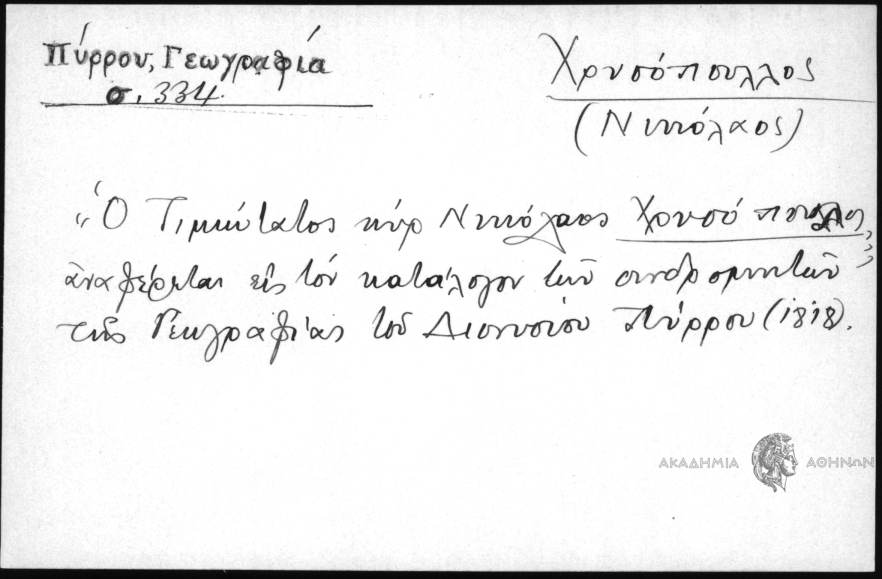 Πύρρου, Γεωγραφία
σ. 334.
Χρυσόπουλλος
(Νικόλαος)
"Ὁ Τιμιώτατος κύρ Νικόλαος Χρυσόπουλλος"
ἀναφέρεται εἰς τόν κατάλογον τῶν συνδρομητῶν
τῆς Γεωγραφίας τοῦ Διονυσίου Πύρρου (1818).
ΑΚΑΔΗΜΙΑ ΑΘΗΝΩΝ